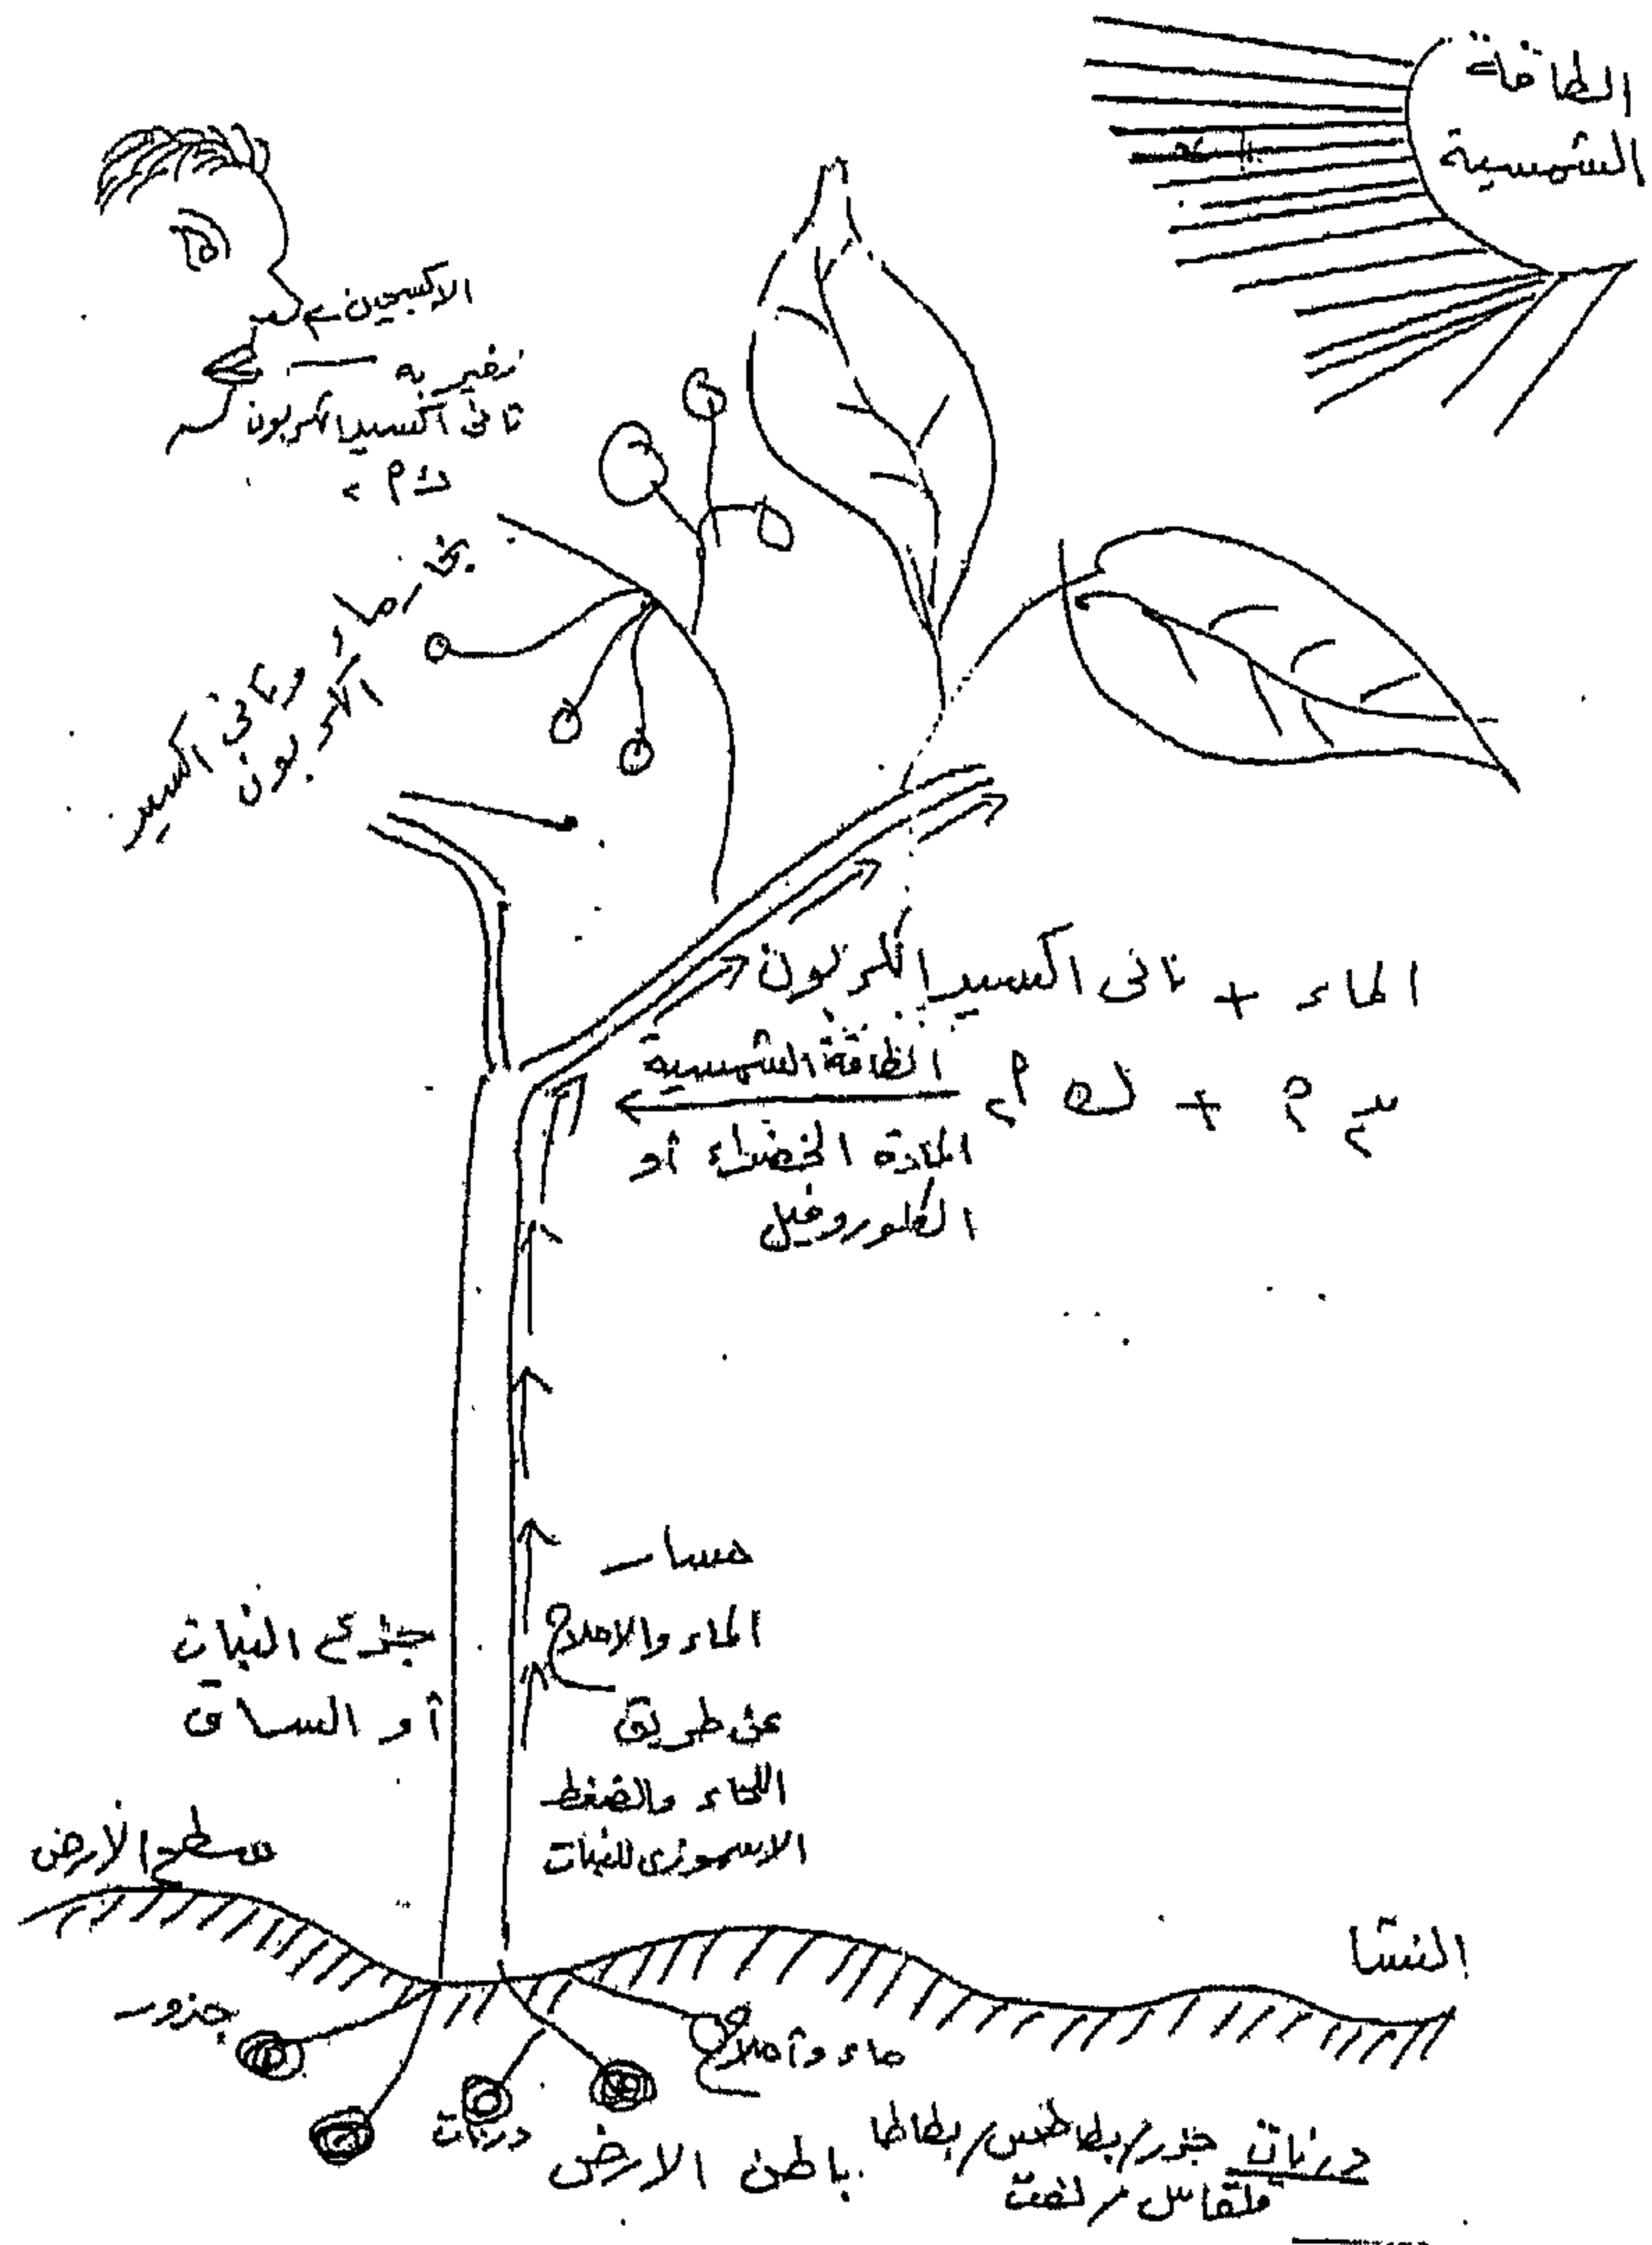 الطاقة
الشمسية
الاكسجين
زفير به
ثانى اكسيد الكربون
ك أ ٢
وثانى اكسيد
الكربون
الماء + ثانى اكسيد الكربون
الطاقة الشمسية
يد٢ أ + ك أ٢
المادة الخضراء أو
الكلوروفيل
مسار
الماء والاملاح
عن طريق
اللحاء والضغط
الاسموزى للنبات
جزع النبات
أو الساق
سطح الأرض
النشا
جزور
ماء وأملاح
درنات
باطن الارض
درنات جزر/بطاطس/بطاطا
قلقاس/لفت